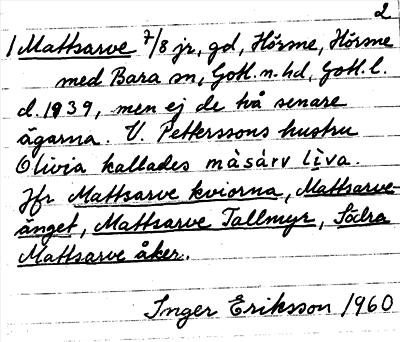 2
1 Mattsarve 7/8 jr, gd, Hörsne, Hörsne
med Bara sn, Gotl. n. hd, Gotl. l.
d. 1939, men ej de två senare
ägarna. V. Petterssons hustru
Olivia kallades màsàrv lìva.
Jfr Mattsarve kviorna, Mattsarve-
änget, Mattsarve Tallmyr, Södra
Mattsarve åker.
Inger Eriksson 1960